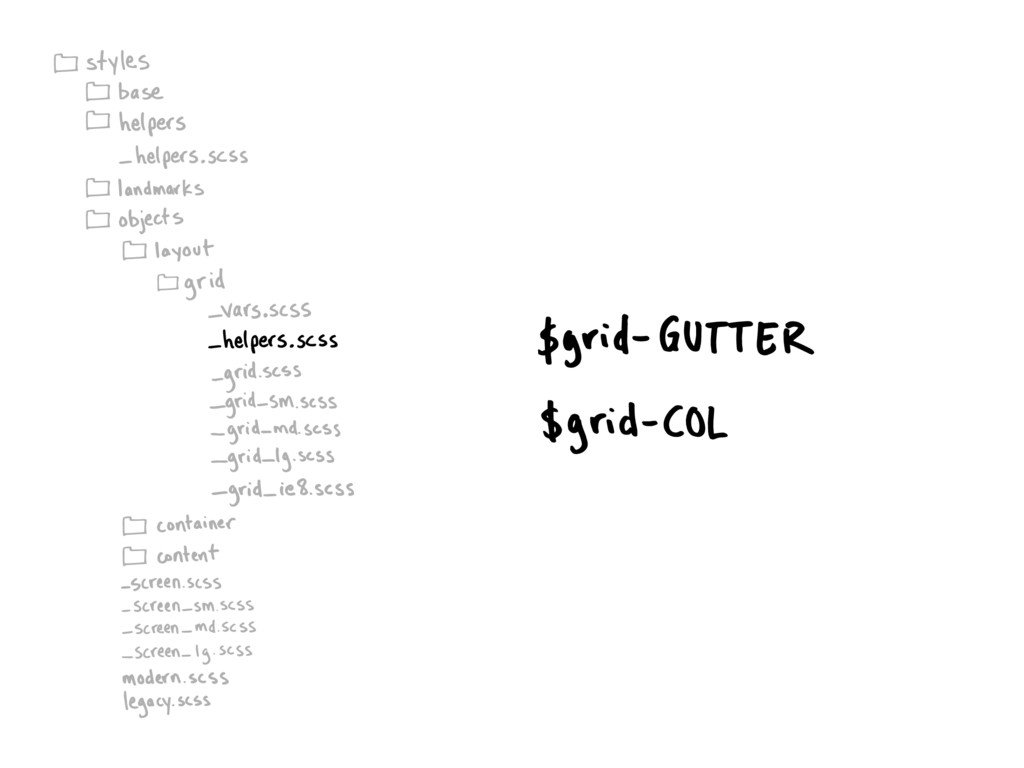 styles
base
helpers
_helpers.scss
landmarks
objects
layout
grid
_vars.scss
_helpers.scss
_grid.scss
_grid_sm.scss
_grid_md.scss
_grid_lg.scss
_grid_ie8.scss
container
content
_screen.scss
_screen_sm.scss
_screen_md.scss
_screen_lg.scss
modern.scss
legacy.scss
$grid-GUTTER
$grid-COL